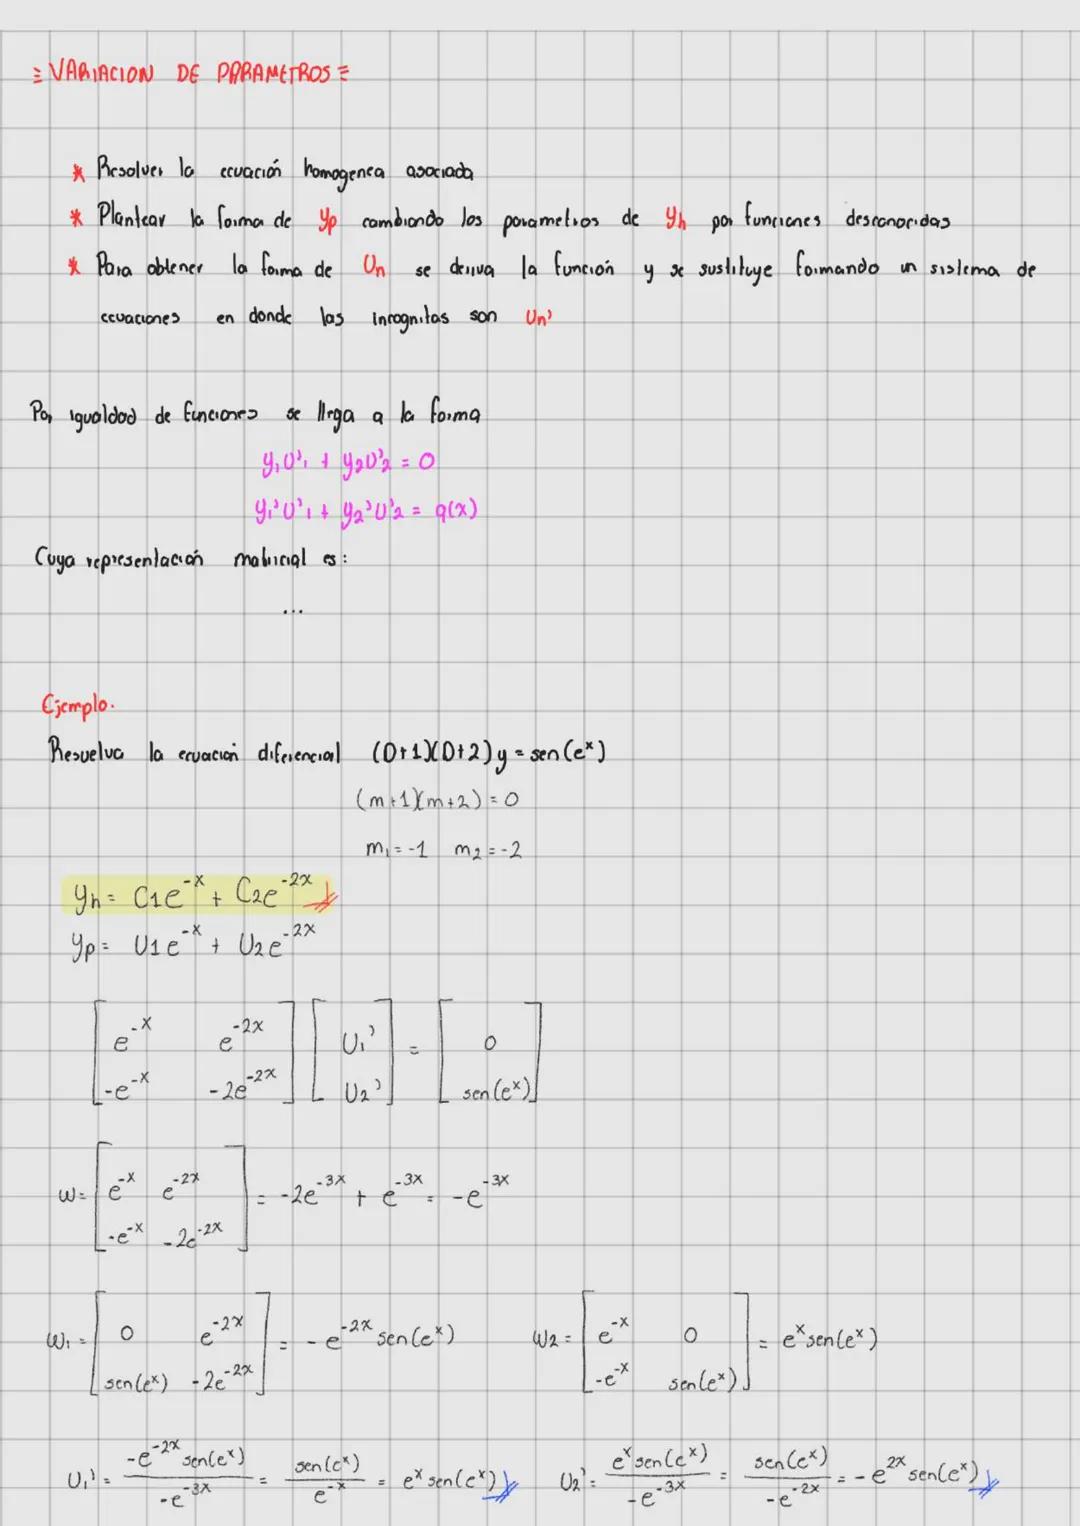 ≡ VARIACION DE PARAMETROS ≡
* Resolver la ecuación homogenea asociada
* Plantear la forma de yp cambiando los parametros de yh por funciones desconocidas
* Para obtener la forma de Un se deriva la función y se sustituye formando un sistema de
ecuaciones en donde las incognitas son Un'
Por igualdad de funciones se llega a la forma
y₁U'₁ + y₂U'₂ = 0
y₁'U'₁ + y₂'U'₂ = q(x)
Cuya representación matricial es:
...
Ejemplo.
Resuelva la ecuación diferencial (D+1)(D+2)y = sen(eˣ)
(m+1)(m+2) = 0
m₁ = -1 m₂ = -2
yh = C1e^-x + C2e^-2x
yp = U1e^-x + U2e^-2x
[e^-x e^-2x] [U₁'] = [0]
[-e^-x -2e^-2x] [U₂'] [sen(eˣ)]
W = [e^-x e^-2x] = -2e^-3x + e^-3x = -e^-3x
[-e^-x -2e^-2x]
W₁ = [0 e^-2x] = -e^-2x sen(eˣ) W₂ = [e^-x 0] = eˣ sen(eˣ)
[sen(eˣ) -2e^-2x] [-e^-x sen(eˣ)]
U₁' = -e^-2x sen(eˣ) / -e^-3x = sen(eˣ) / e^-x = eˣ sen(eˣ) U₂' = eˣ sen(eˣ) / -e^-3x = sen(eˣ) / -e^-2x = -e^2x sen(eˣ)